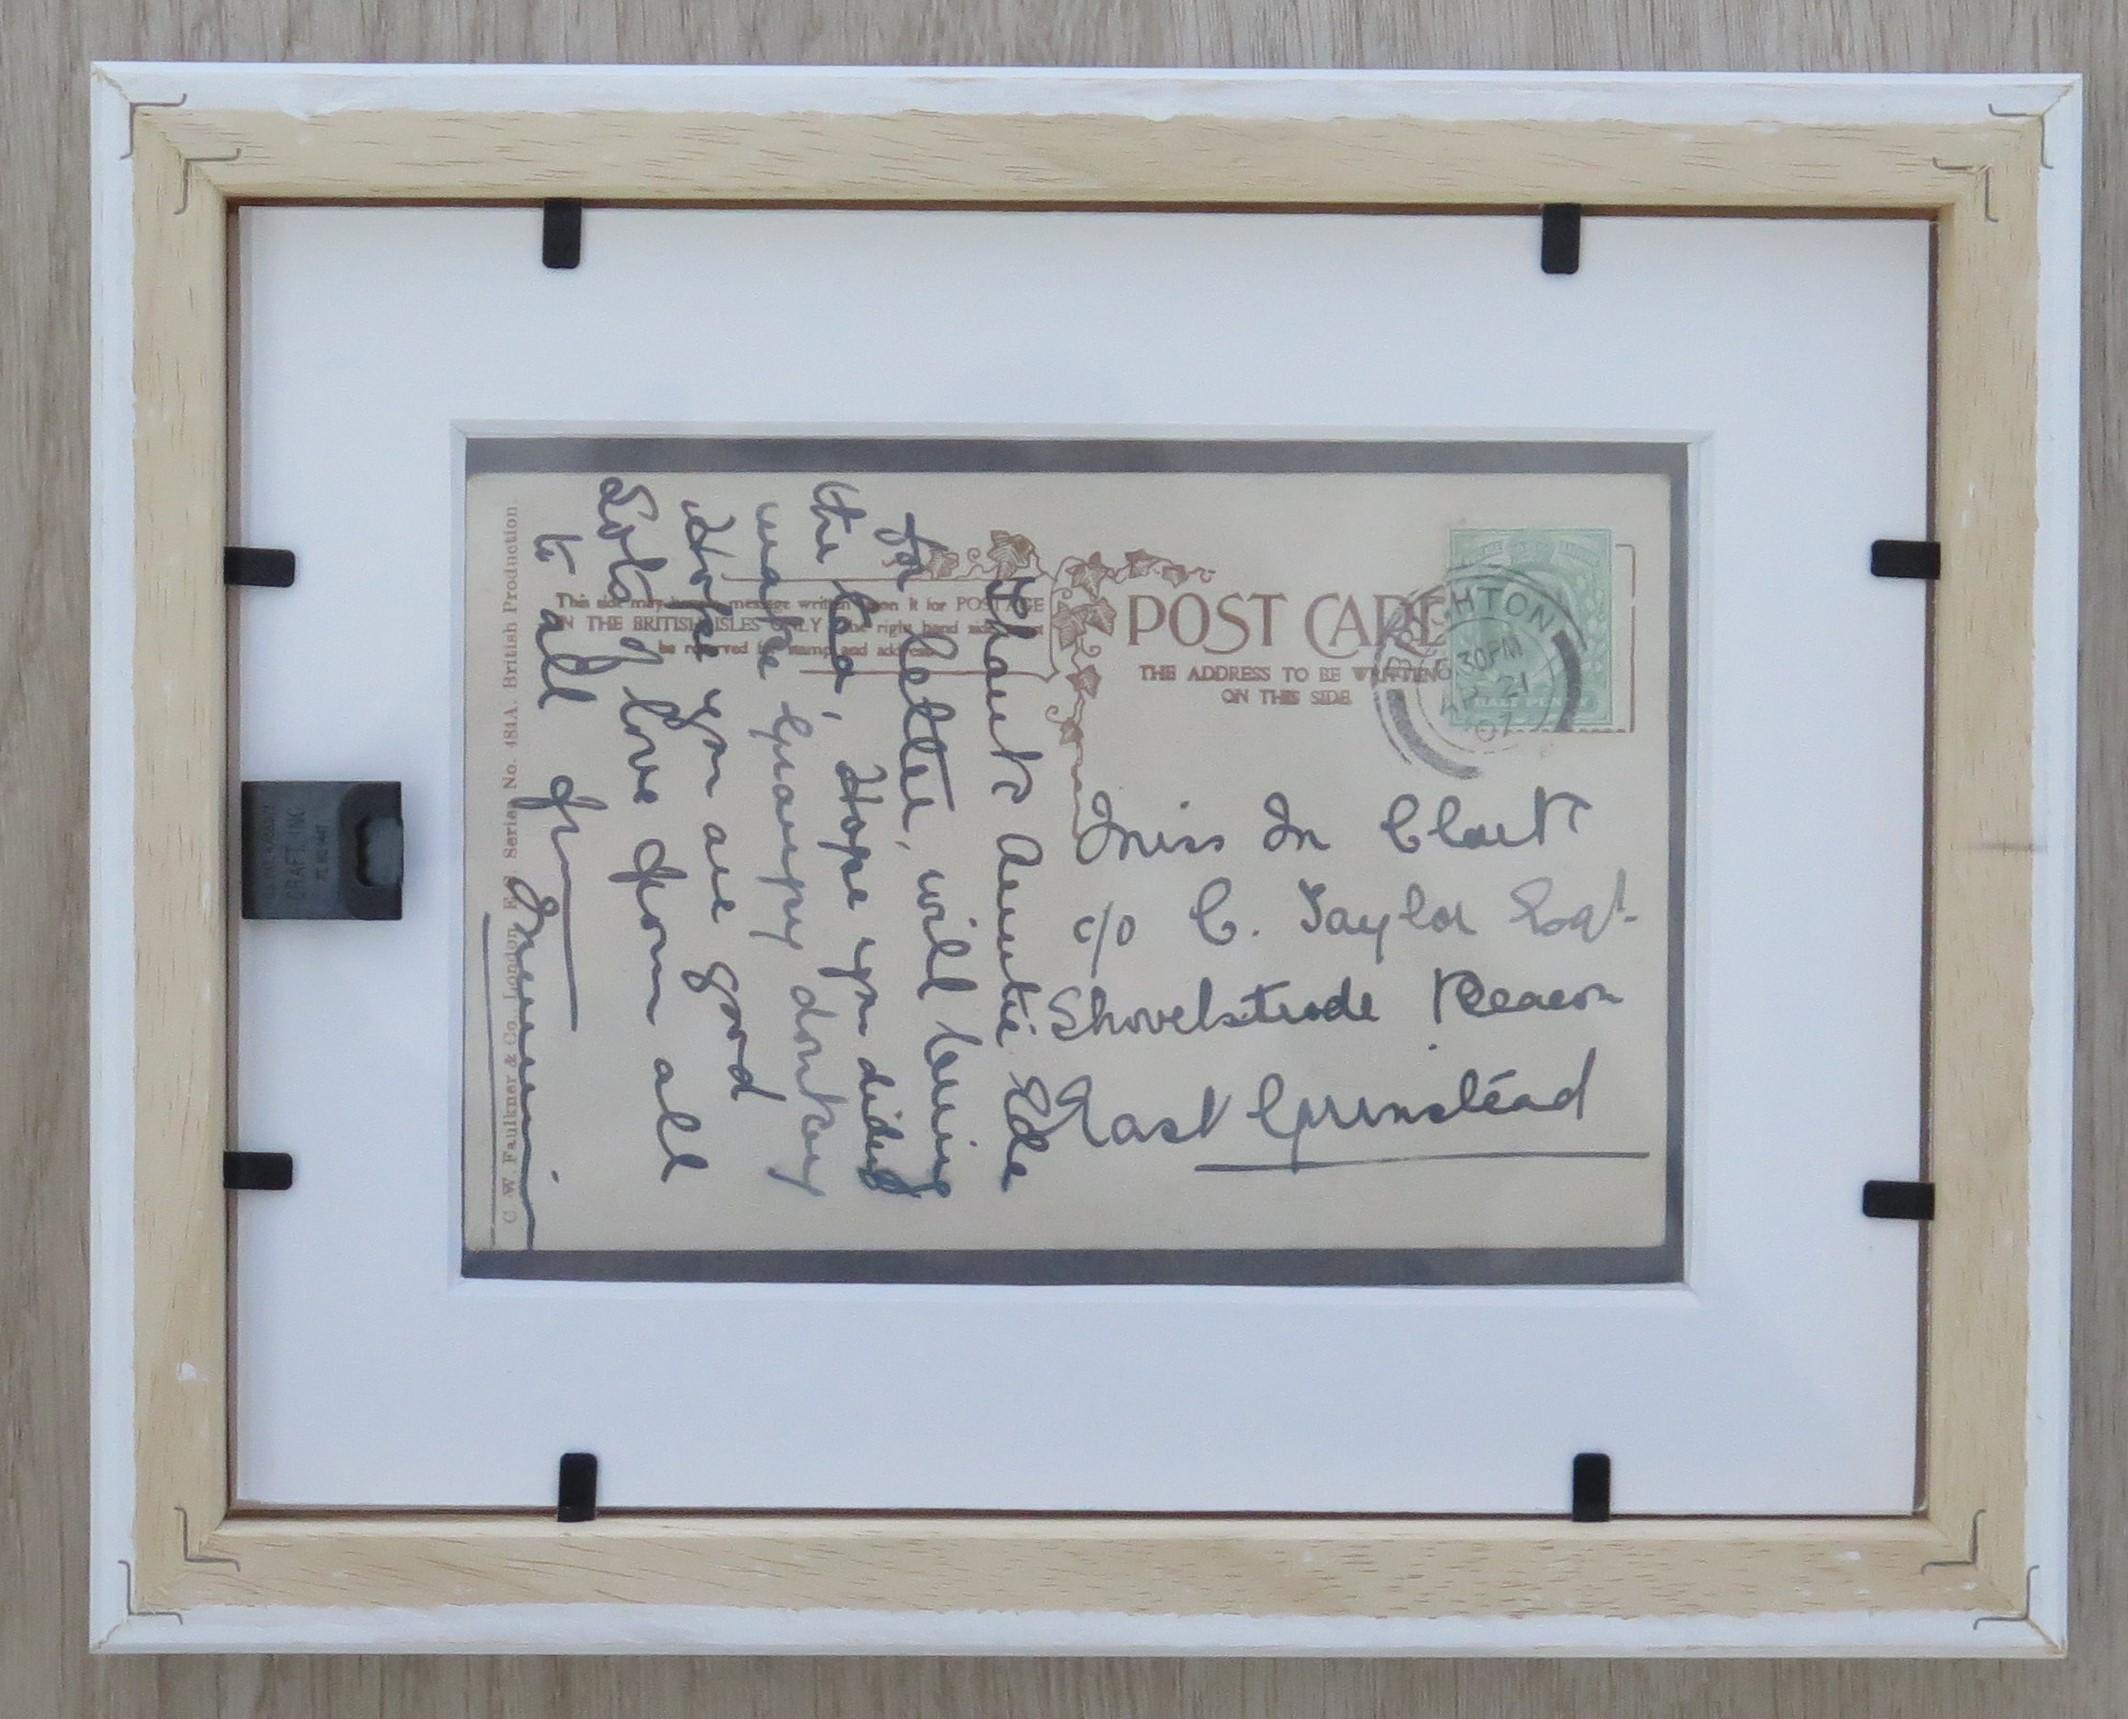 POST CARD
THE ADDRESS TO BE WRITTEN
ON THIS SIDE
This side may message written upon it for POSTAGE
IN THE BRITISH ISLES ONLY the right hand side
be reserved for stamp and address
BRIGHTON
30 PM
AP 21
07
HALF PENNY
Miss M Clark
c/o C. Taylor Esqr.
Shovelstrode Beacon
East Grinstead
Thank Auntie Ede
for letter, will bring
the Hope you didnt
make Grumpy donkey
Hope you are good
Lots of love from all
to all fr
C. W. Faulkner & Co., London, E.C. Series No. 484A. British Production.
CRAFT, INC